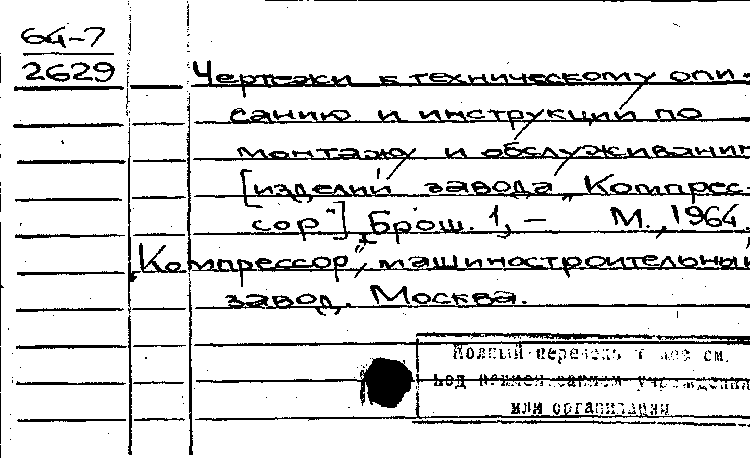 64-7
2629
Чертежи к техническому опи-
санию и инструкции по
монтажу и обслуживанию
[изделий завода „Компрес-
сор"]. Брош. 1, – М., 1964.
„Компрессор", машиностроительный
завод. Москва.
Полный перечень см.
под наименованием учреждения
или организации